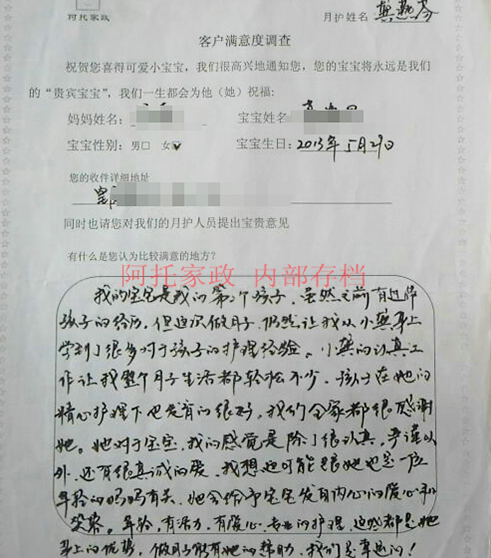 阿托家政
月护姓名：龚艳芬
客户满意度调查
祝贺您喜得可爱小宝宝，我们很高兴地通知您，您的宝宝将永远是我们
的“贵宾宝宝”，我们一生都会为他（她）祝福:
妈妈姓名: 宝宝姓名:
宝宝性别：男□ 女☑ 宝宝生日：2013年5月29日
您的收件详细地址
同时也请您对我们的月护人员提出宝贵意见
有什么是您认为比较满意的地方?
阿托家政 内部存档
我的宝宝是我的第2个孩子，虽然之前有过带
孩子的经历，但这次做月子仍然让我从小龚身上
学到了很多对于孩子的护理经验。小龚的认真工
作让我整个月子生活都轻松不少，孩子在她的
精心护理下也发育的很好，我们全家都很感谢
她。她对于宝宝，我的感觉是除了很认真，严谨以
外，还有很真诚的爱，我想这可能跟她也是一位
年轻的妈妈有关，她会给予宝宝发自内心的爱心和
笑容。年轻，有活力，有爱心，专业的护理，这些都是她
身上的优势，做月子能有她的帮助，我们